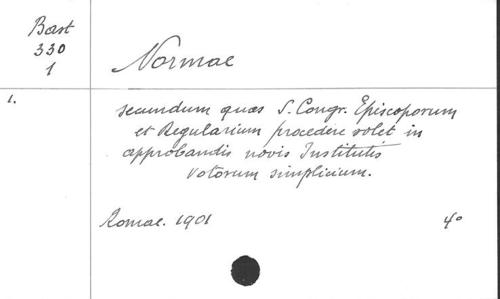 Bast
330
1
Normae
1.
secundum quas S. Congr. Episcoporum
et Regularium procedere solet in
approbandis novis Institutis
votorum simplicium.
Romae. 1901
4°